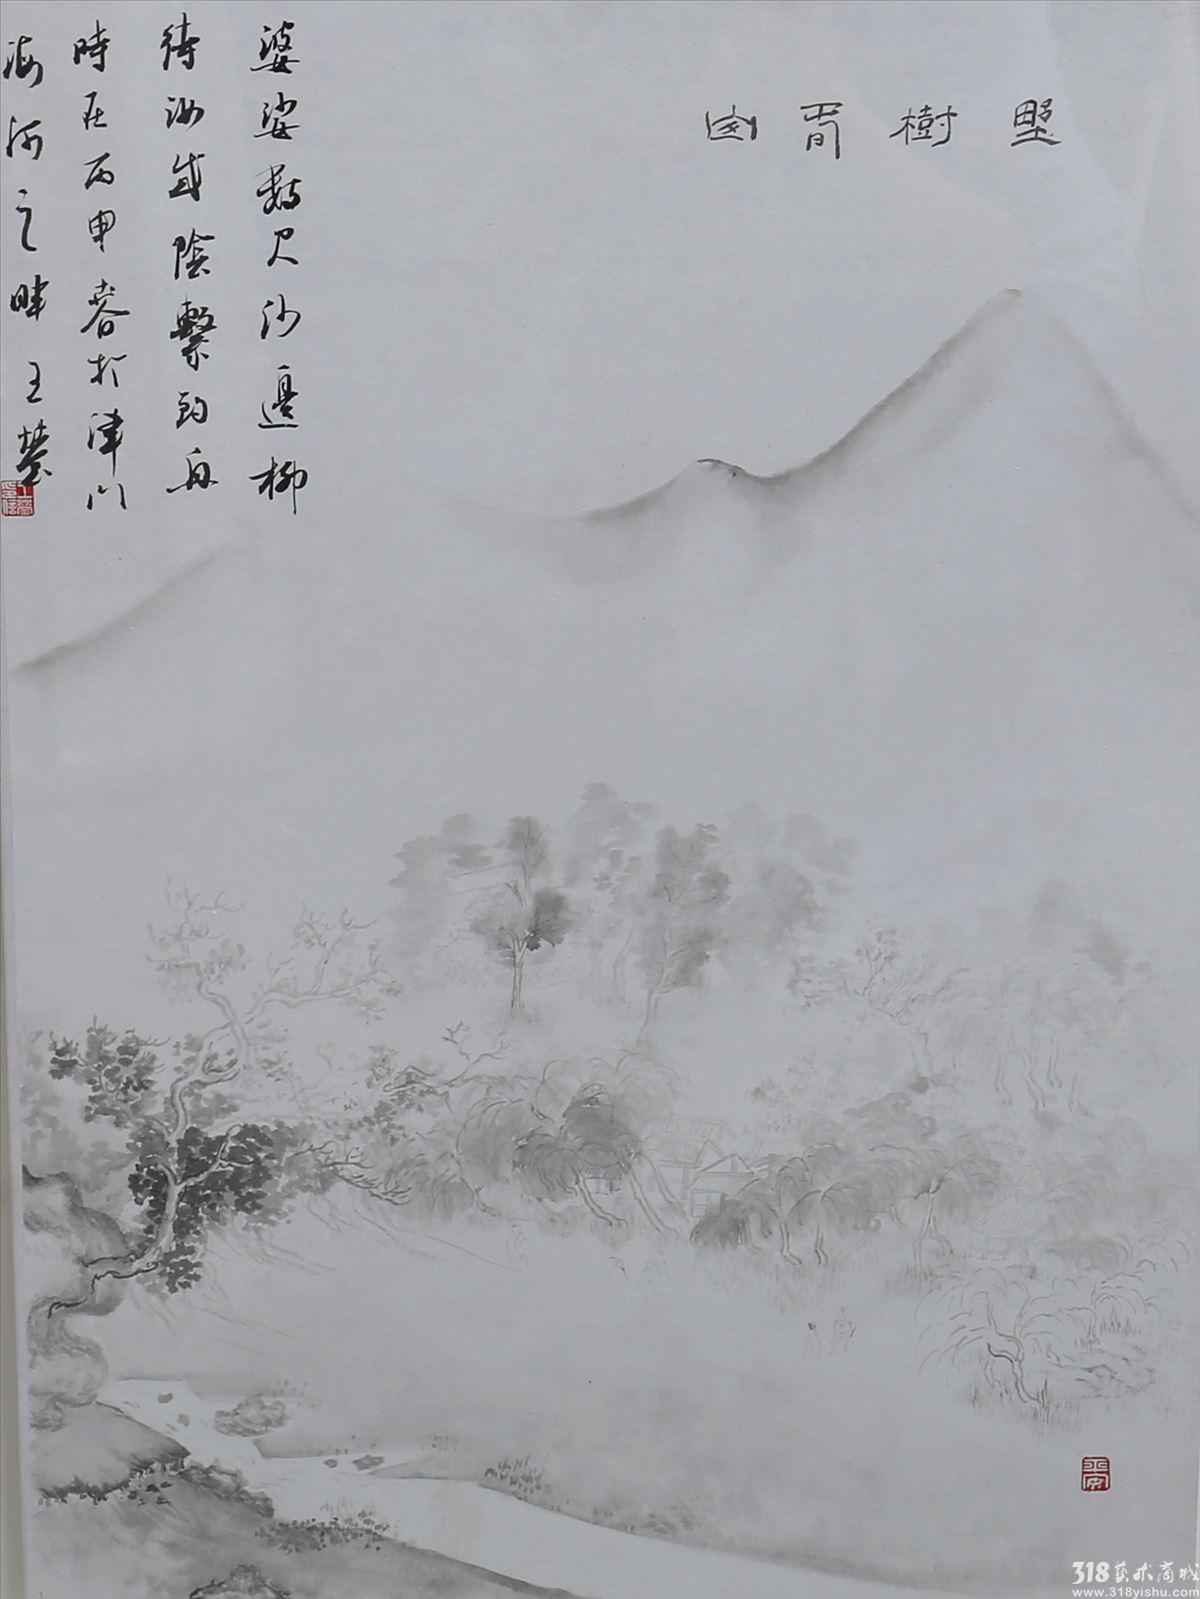 墅樹
婆娑數尺沙邊柳
待汝成陰繫釣舟
時在丙申春於津門
海河之畔王
平安
318藝术商城
www.318yishu.com